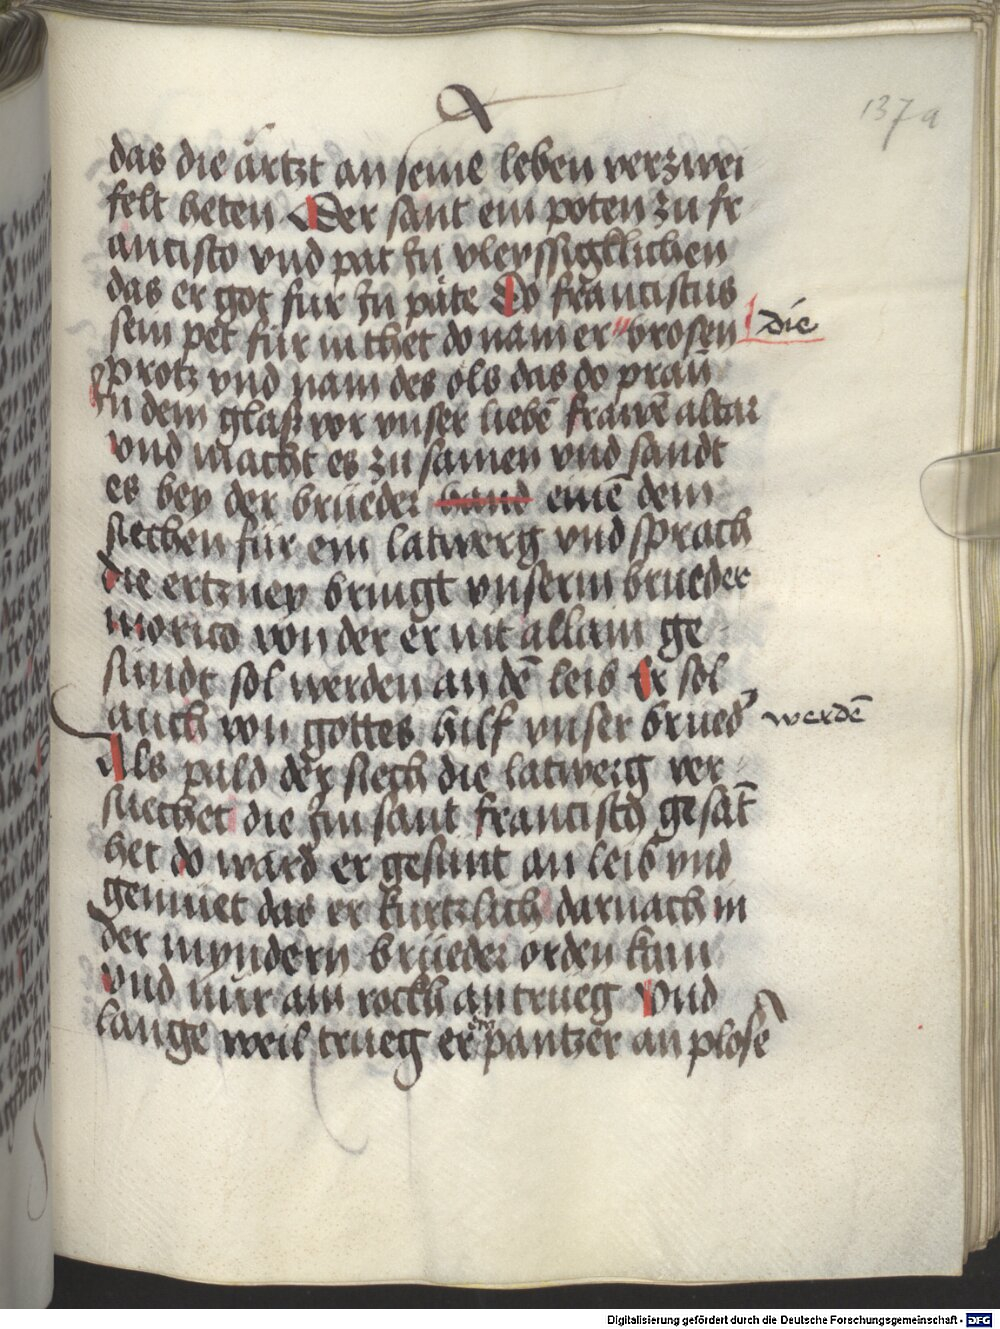 137a
das die artzt an seine leben verzwei
felt heten Der sant ein poten zu fr
ancisco vnd pat jn vleyssigklichen
das er got fur jn päte Do franciscus
sein pet für in thet do nam er " brosen die
Protz vnd nam des öls das do pran
jn dem glaß vor vnser liebē frawē altar
vnd macht es zu samen vnd sandt
es bey der brüeder einē dem
siechen für ein latwerg vnd sprach
die ertzney bringt vnserm brueder
morico von der er nit allain ge
sundt sol werden an dē leib Er sol
auch von gottes hilf vnser brued werdē
Als pald der siech die latwerg ver
suechet die jm sant francisco gesāt
het do ward er gesunt an leib vnd
gemuet das er kurtzlich darnach in
der myndern brüeder orden kam
vnd nür ain rockh an trueg Vnd
lange weil trueg er ein pantzer an plosē
Digitalisierung gefördert durch die Deutsche Forschungsgemeinschaft - DFG